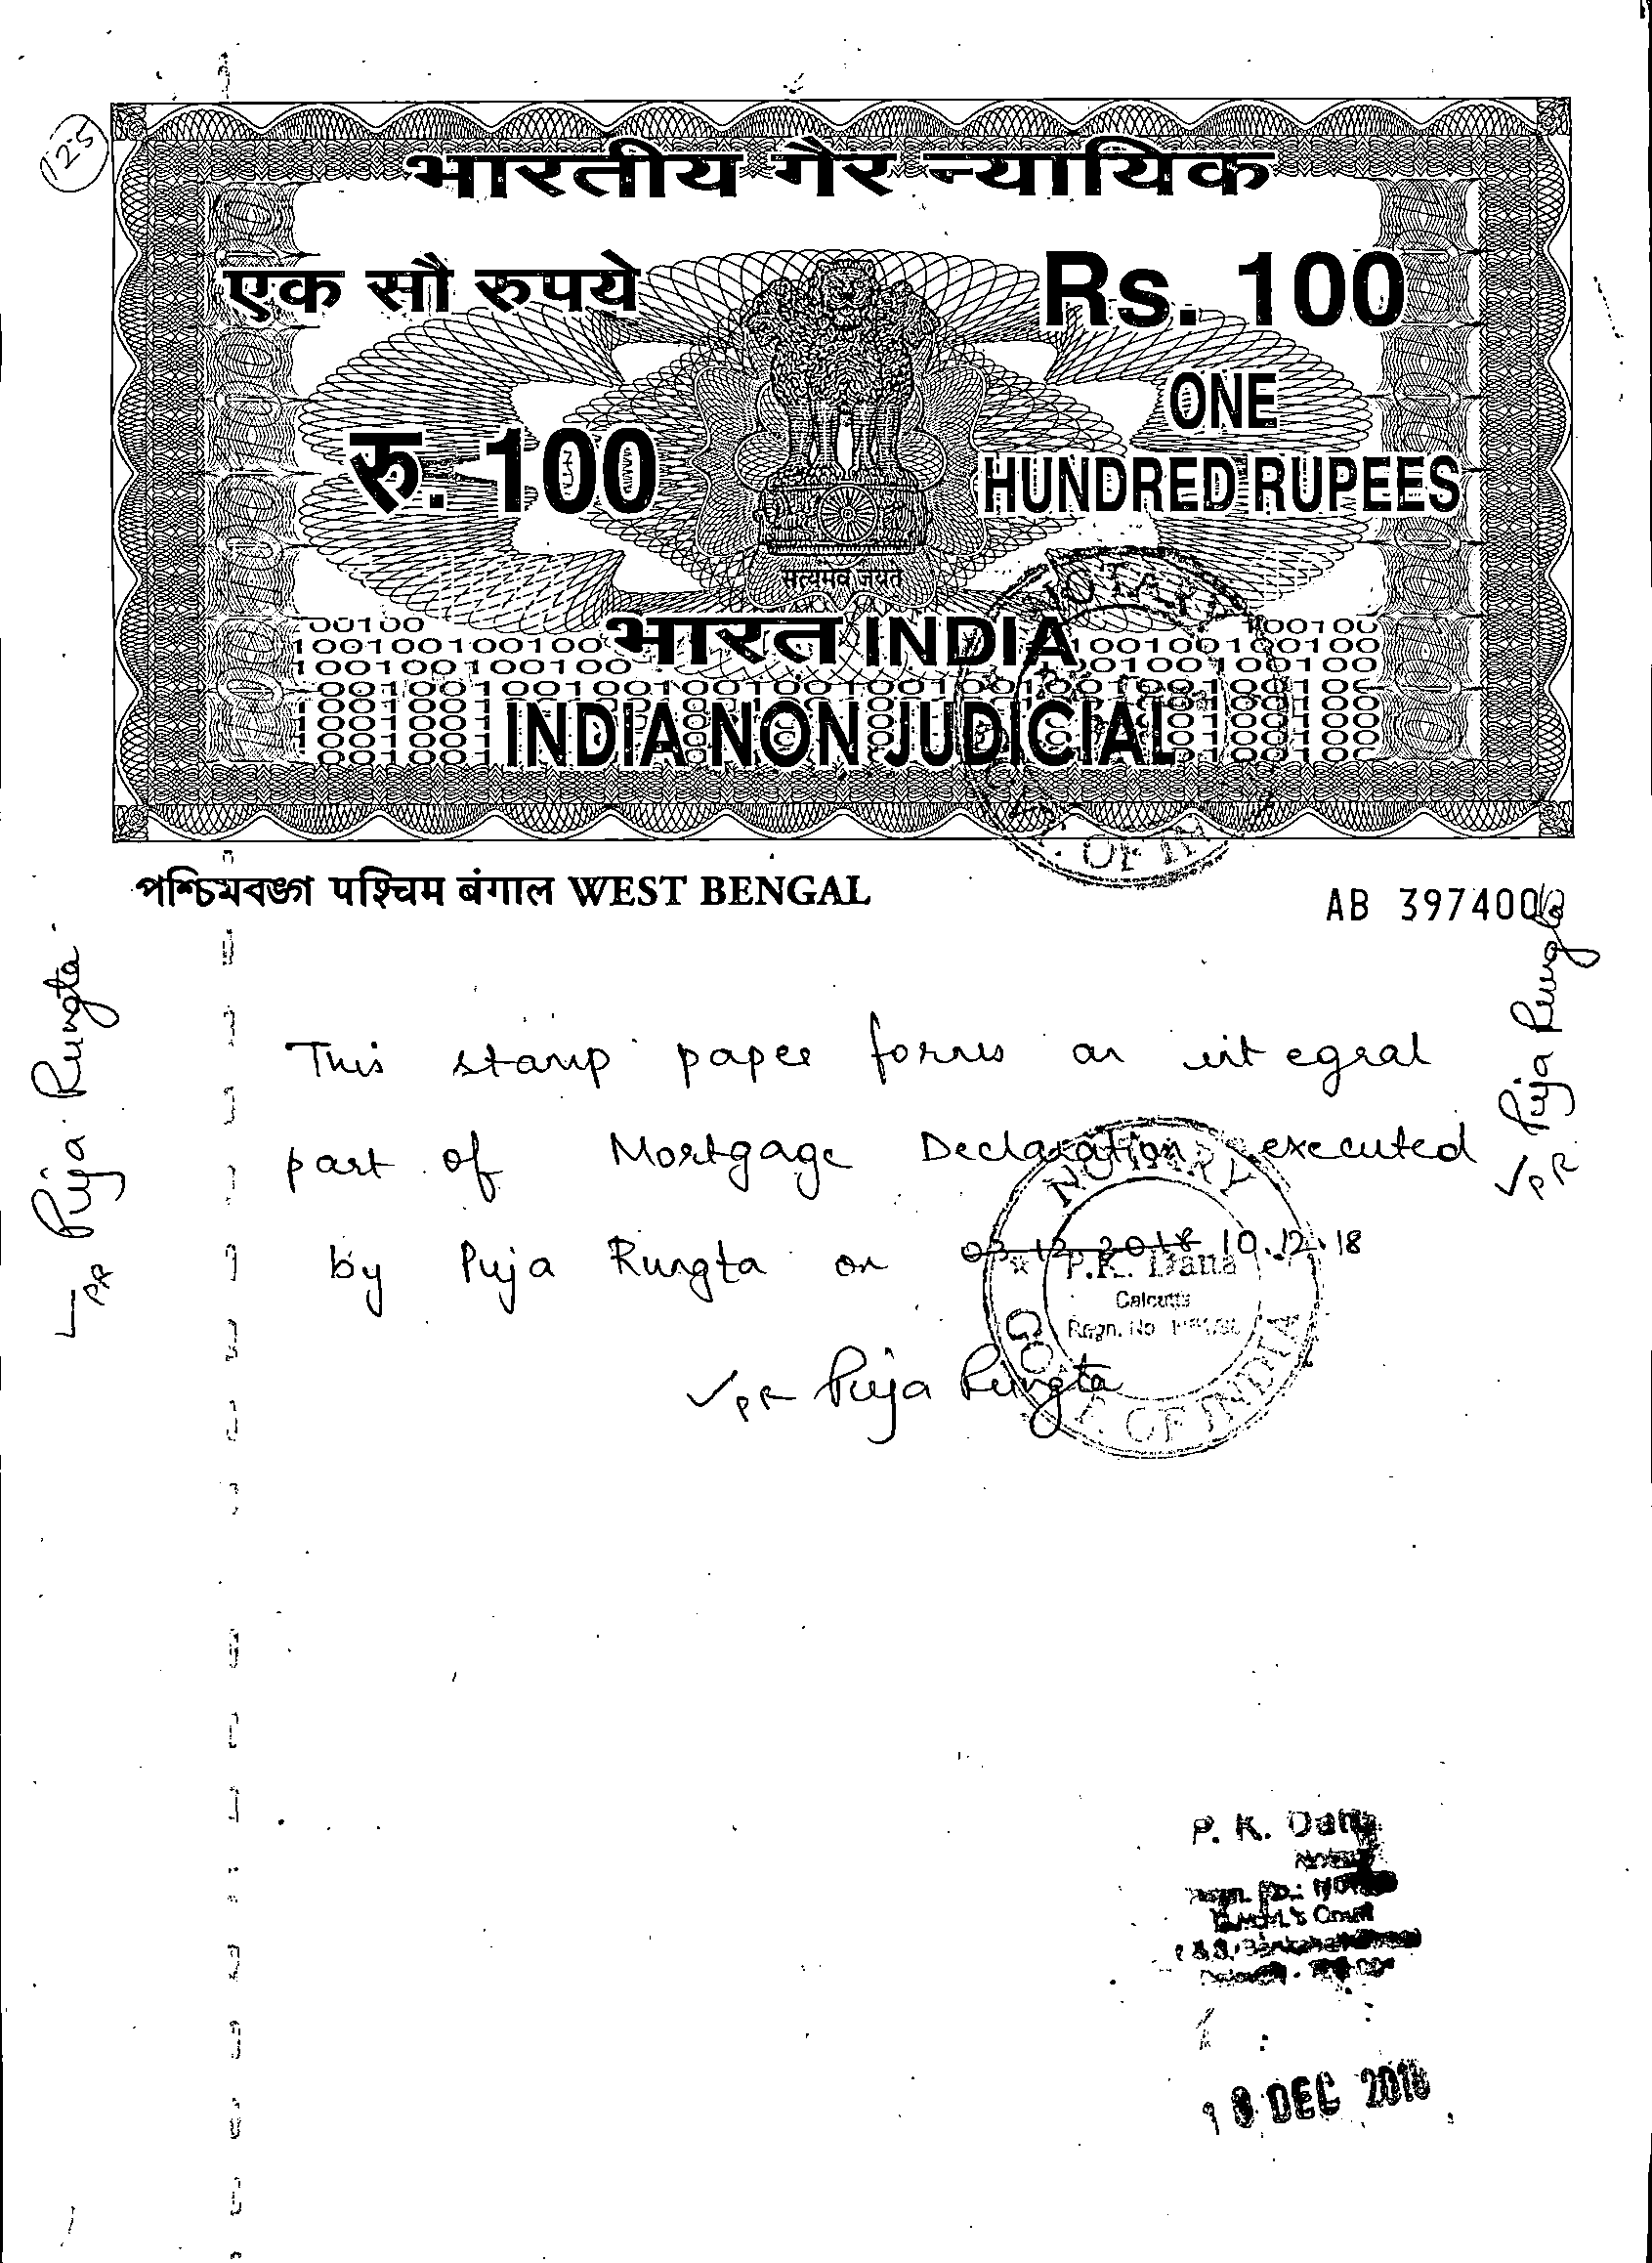 125
भारतीय गैर न्यायिक
एक सौ रुपये
Rs. 100
रु. 100
ONE
HUNDRED RUPEES
सत्यमेव जयते
भारत INDIA
INDIA NON JUDICIAL
পশ্চিমবঙ্গ पश्चिम बंगाल WEST BENGAL
AB 397400
This stamp paper forms an integral
part of Mortgage Declaration executed
by Puja Rungta on 03.12.2018 10.12.18
PR Puja Rungta
PR Puja Rungta
PR Puja Rungta
NOTARY
P.K. Dana
Calcutta
Regn. No
GOVT. OF INDIA
P. K. Dana
Notary
DEC 2018